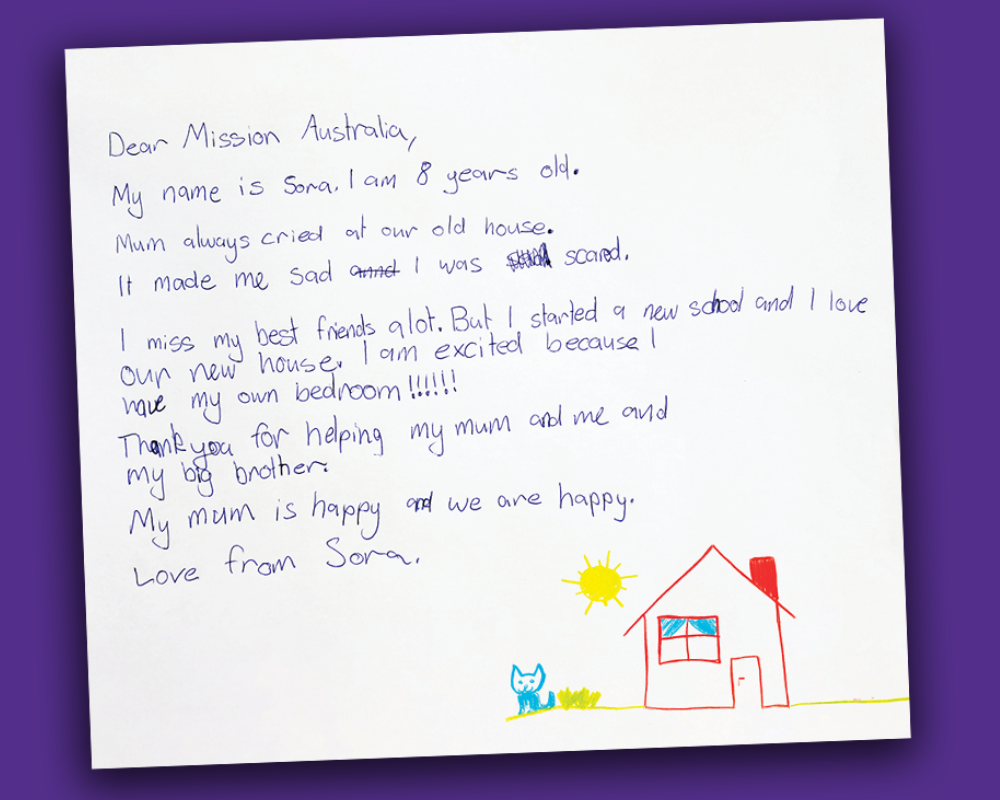 Dear Mission Australia,
My name is Sora. I am 8 years old.
Mum always cried at our old house.
It made me sad annd I was scared.
I miss my best friends alot. But I started a new school and I love
our new house. I am excited because I
have my own bedroom!!!!!!
Thank you for helping my mum and me and
my big brother.
My mum is happy and we are happy.
Love from Sora.